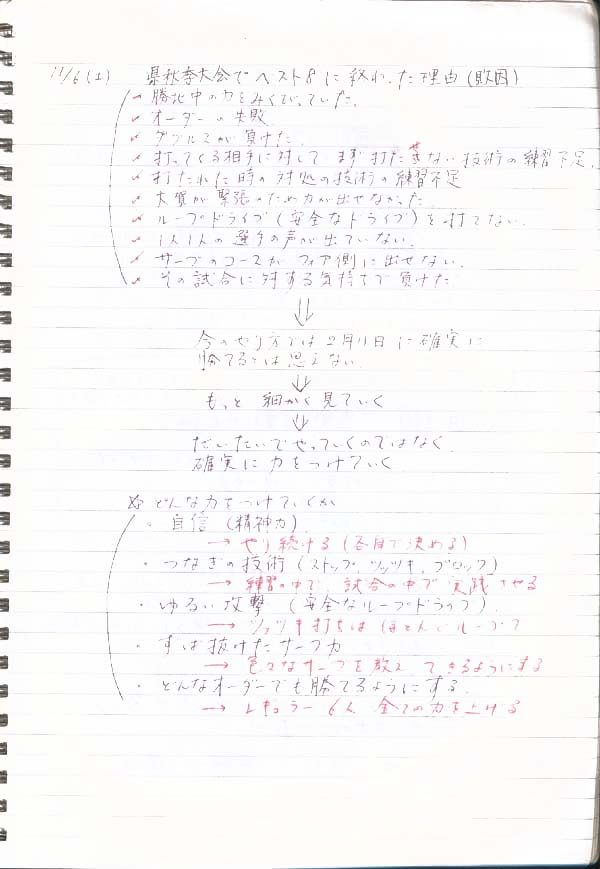 11/6(土) 県秋季大会でベスト8に終わった理由(敗因)
✓ 勝北中の力をみくびっていた。
✓ オーダーの失敗
✓ ダブルスが負けた。
✓ 打ってくる相手に対して まず打たせない技術の練習不足。
✓ 打たれた時の対処の技術の練習不足
✓ 大賀が緊張のため力が出せなかった。
✓ ループドライブ(安全なドライブ)を打てない。
✓ 1人1人の選手の声が出ていない。
✓ サーブのコースがフォア側に出せない。
✓ その試合に対する気持ちで負けた
⇓
今のやり方では2月11日に確実に
勝てるとは思えない
⇓
もっと 細かく見ていく
⇓
だいたいでやっていくのではなく
確実に力をつけていく
☆ どんな力をつけていくか
・自信(精神力)
→ やり続ける(各自で決める)
・つなぎの技術(ストップ、ツッツキ、ブロック)
→ 練習の中で、試合の中で実践させる
・ゆるい攻撃(安全なループドライブ)
→ ツッツキ打ちは ほとんどループで
・ずば抜けたサーブ力
→ 色々なサーブを教え できるようにする
・どんなオーダーでも勝てるようにする
→ レギュラー6人 全ての力を上げる